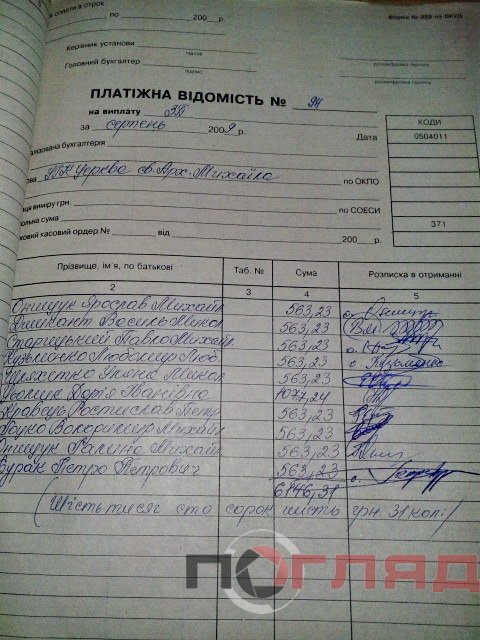 и оплати в строк
по 200 р.
Форма № 389 по ОКУД
Керівник установи
підпис
розшифровка підпису
Головний бухгалтер
підпис
розшифровка підпису
ПЛАТІЖНА ВІДОМІСТЬ № 94
на виплату ЗП
за серпень 2009 р.
КОДИ
Дата 0504011
лізована бухгалтерія
УГК Церква св. Арх. Михаїла по ОКПО
ця виміру грн. по СОЕСИ
ольна сума 371
ковий касовий ордер № від 200 р.
Прізвище, ім'я, по батькові Таб. № Сума Розписка в отриманні
2 3 4 5
Онищук Ярослав Михайл 563,23 Онищук
Василь 563,23
Старицький Павло Михайл 563,23
Кузьменко Любомир Люб 563,23 Кузьменко
563,23
Дарія Іванівна 1077,24
Кравець Ростислав Петр 563,23
Володимир Михайл 563,23
Онищук Галина Михайл 563,23
Бурак Петро Петрович 563,23
6146,31
(Шість тисяч сто сорок шість грн. 31 коп.)
ПОГЛЯД